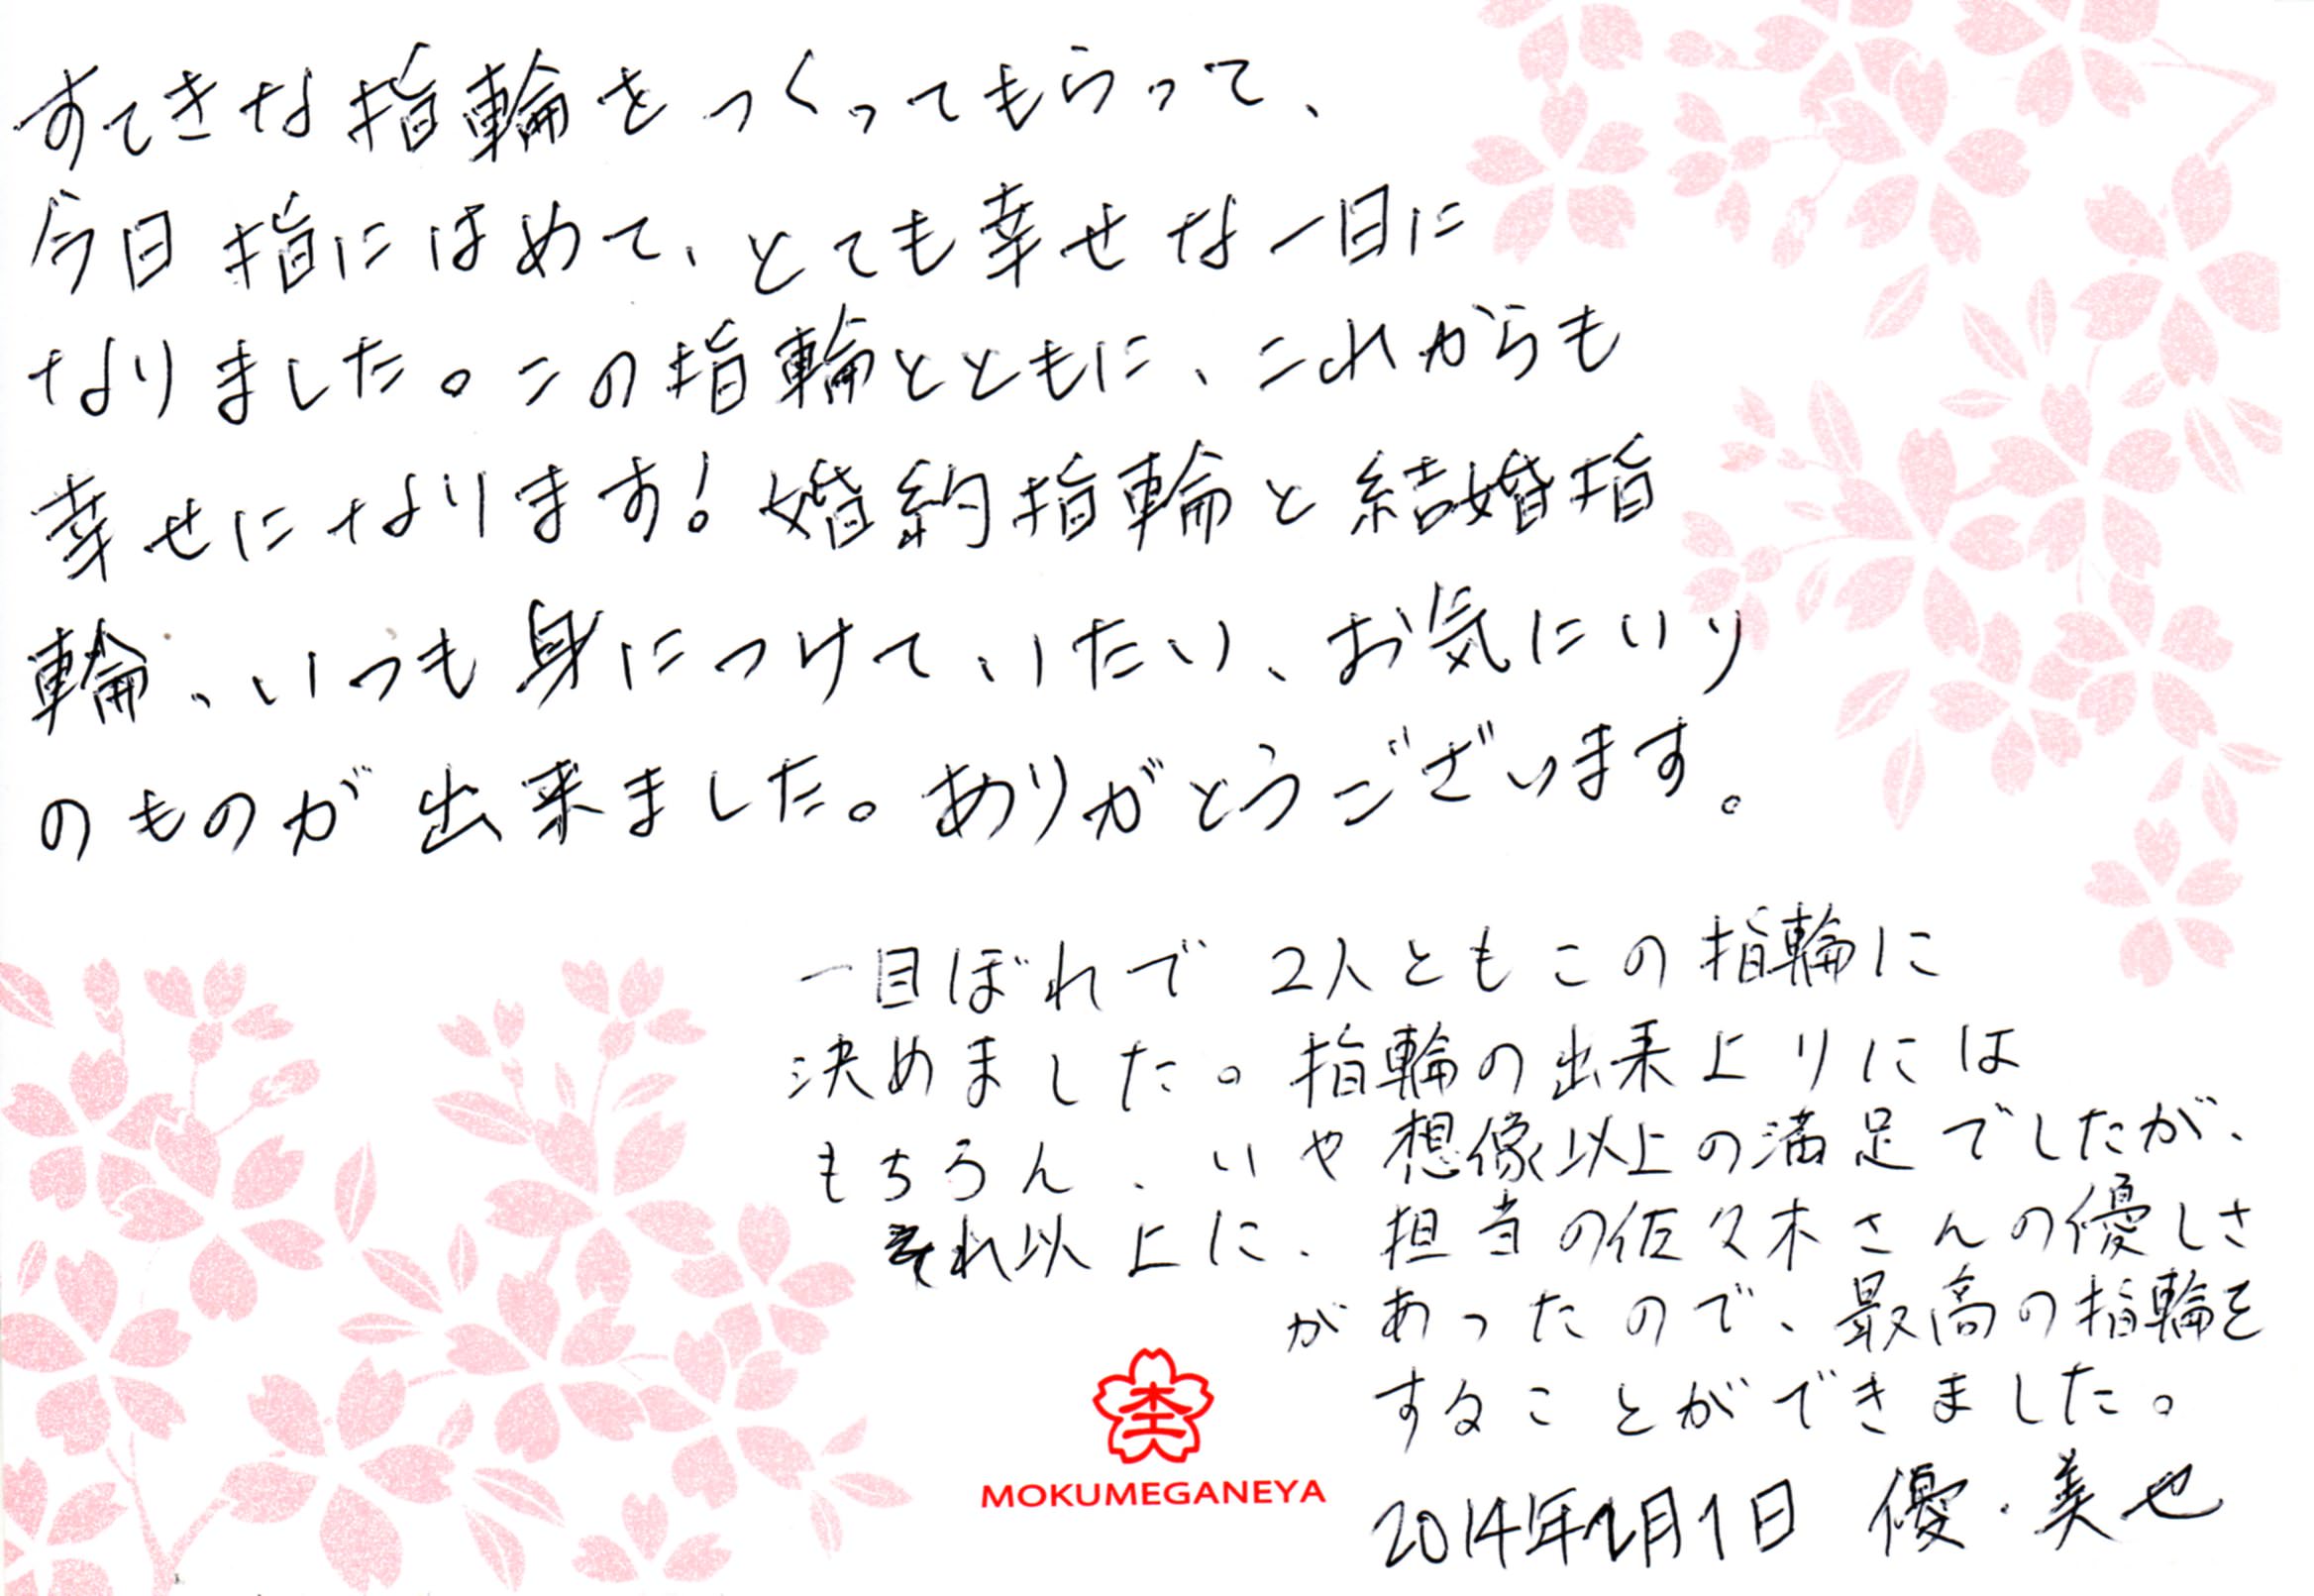 すてきな指輪をつくってもらって、
今日指にはめて、とても幸せな一日に
なりました。この指輪とともに、これからも
幸せになります！婚約指輪と結婚指
輪、いつも身につけていたい、お気にいり
のものが出来ました。ありがとうございます。
一目ぼれで2人ともこの指輪に
決めました。指輪の出来上りには
もちろん、いや想像以上の満足でしたが、
それ以上に、担当の佐々木さんの優しさ
があったので、最高の指輪を
することができました。
MOKUMEGANEYA
2014年2月1日 優・美也